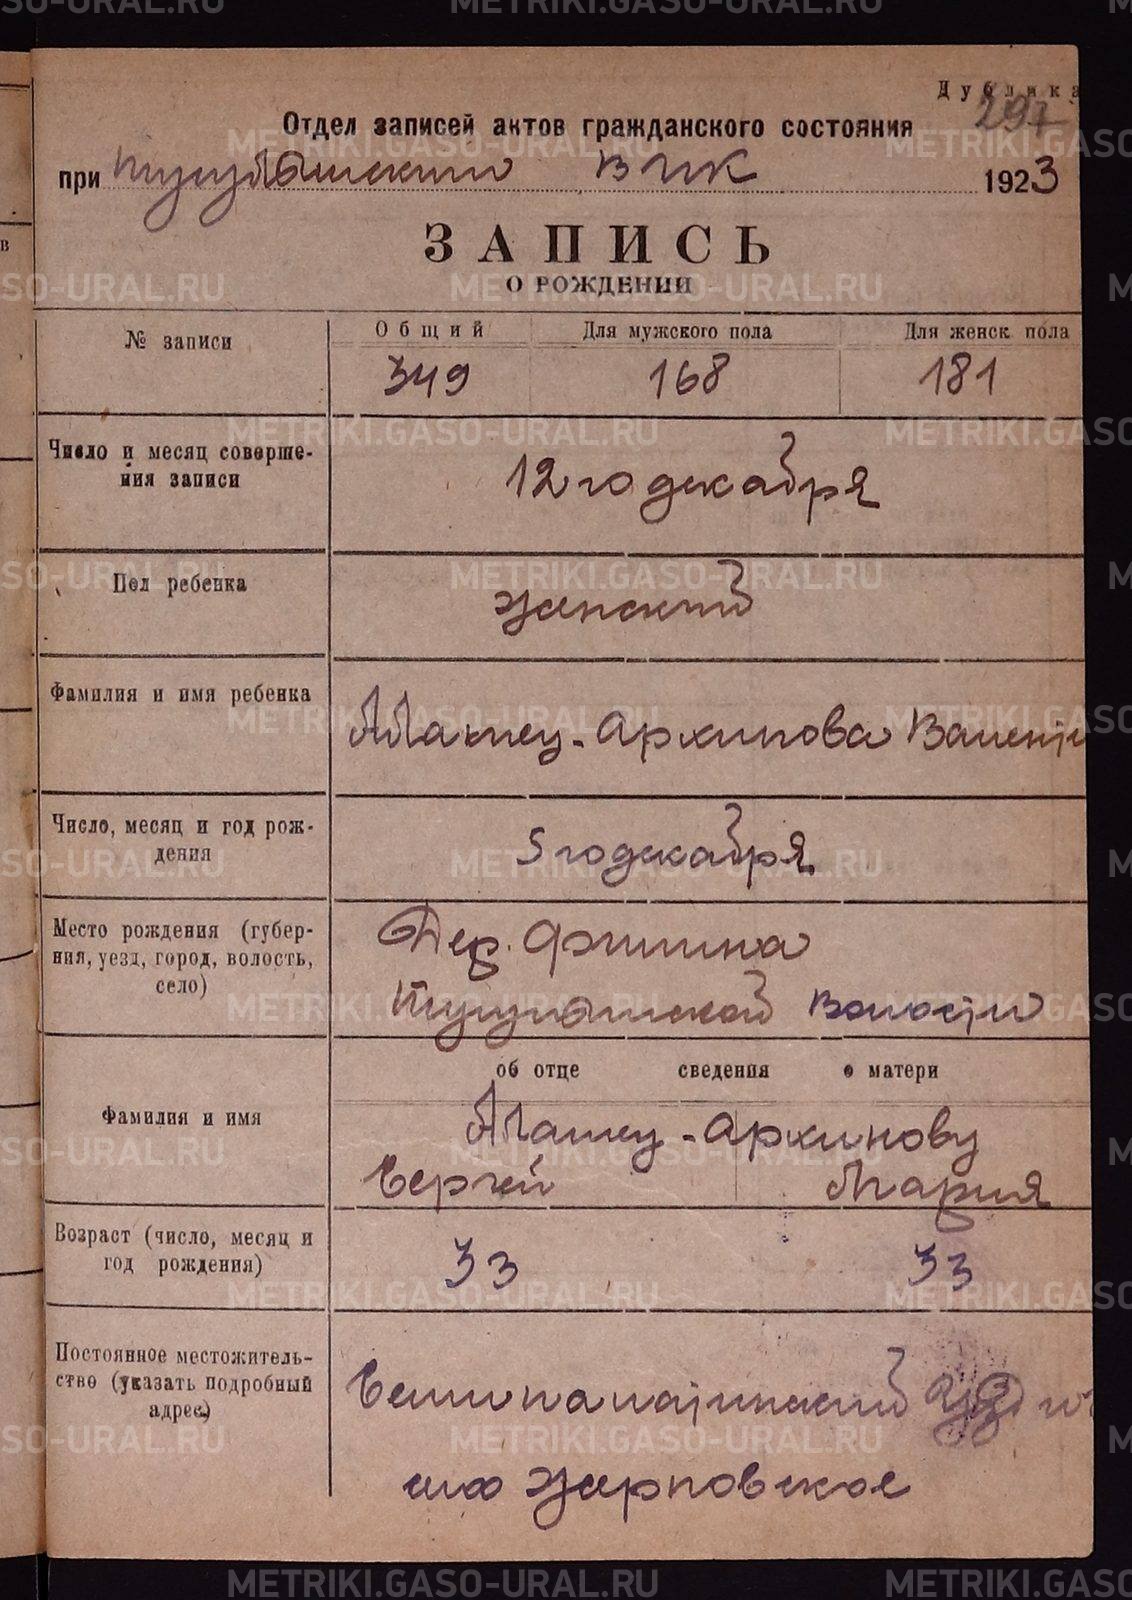 Дублика
297
Отдел записей актов гражданского состояния
при ВИК 1923
ЗАПИСЬ
О РОЖДЕНИИ
№ записи
Общий Для мужского пола Для женск. пола
349 168 181
Число и месяц соверше-
ния записи
12го декабря
Пол ребенка
Женский
Фамилия и имя ребенка
Архипова Валенти
Число, месяц и год рож-
дения
5го декабря
Место рождения (губер-
ния, уезд, город, волость,
село)
Дер.
Волости
об отце сведения о матери
Фамилия и имя
Сергей Мария
Возраст (число, месяц и
год рождения)
33 33
Постоянное местожитель-
ство (указать подробный
адрес)
Семипалатинский
METRIKI.GASO-URAL.RU